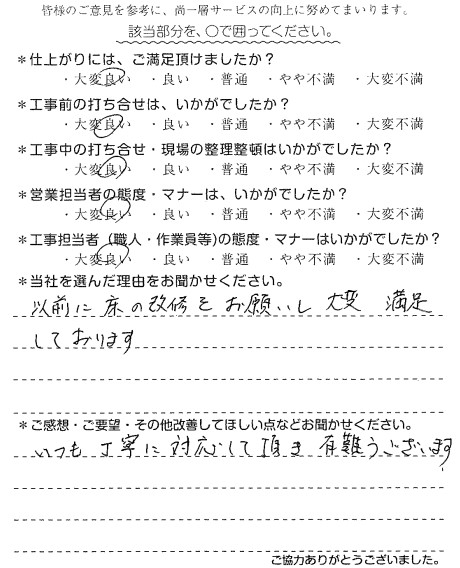 皆様のご意見を参考に、尚一層サービスの向上に努めてまいります。
該当部分を、○で囲ってください。
＊仕上がりには、ご満足頂けましたか？
・大変良い ・良い ・普通 ・やや不満 ・大変不満
＊工事前の打ち合せは、いかがでしたか？
・大変良い ・良い ・普通 ・やや不満 ・大変不満
＊工事中の打ち合せ・現場の整理整頓はいかがでしたか？
・大変良い ・良い ・普通 ・やや不満 ・大変不満
＊営業担当者の態度・マナーは、いかがでしたか？
・大変良い ・良い ・普通 ・やや不満 ・大変不満
＊工事担当者（職人・作業員等)の態度・マナーはいかがでしたか？
・大変良い ・良い ・普通 ・やや不満 ・大変不満
＊当社を選んだ理由をお聞かせください。
以前に床の改修をお願いし 大変 満足
しております
＊ご感想・ご要望・その他改善してほしい点などお聞かせください。
いつも丁寧に対応して頂き 有難うございます!
ご協力ありがとうございました。